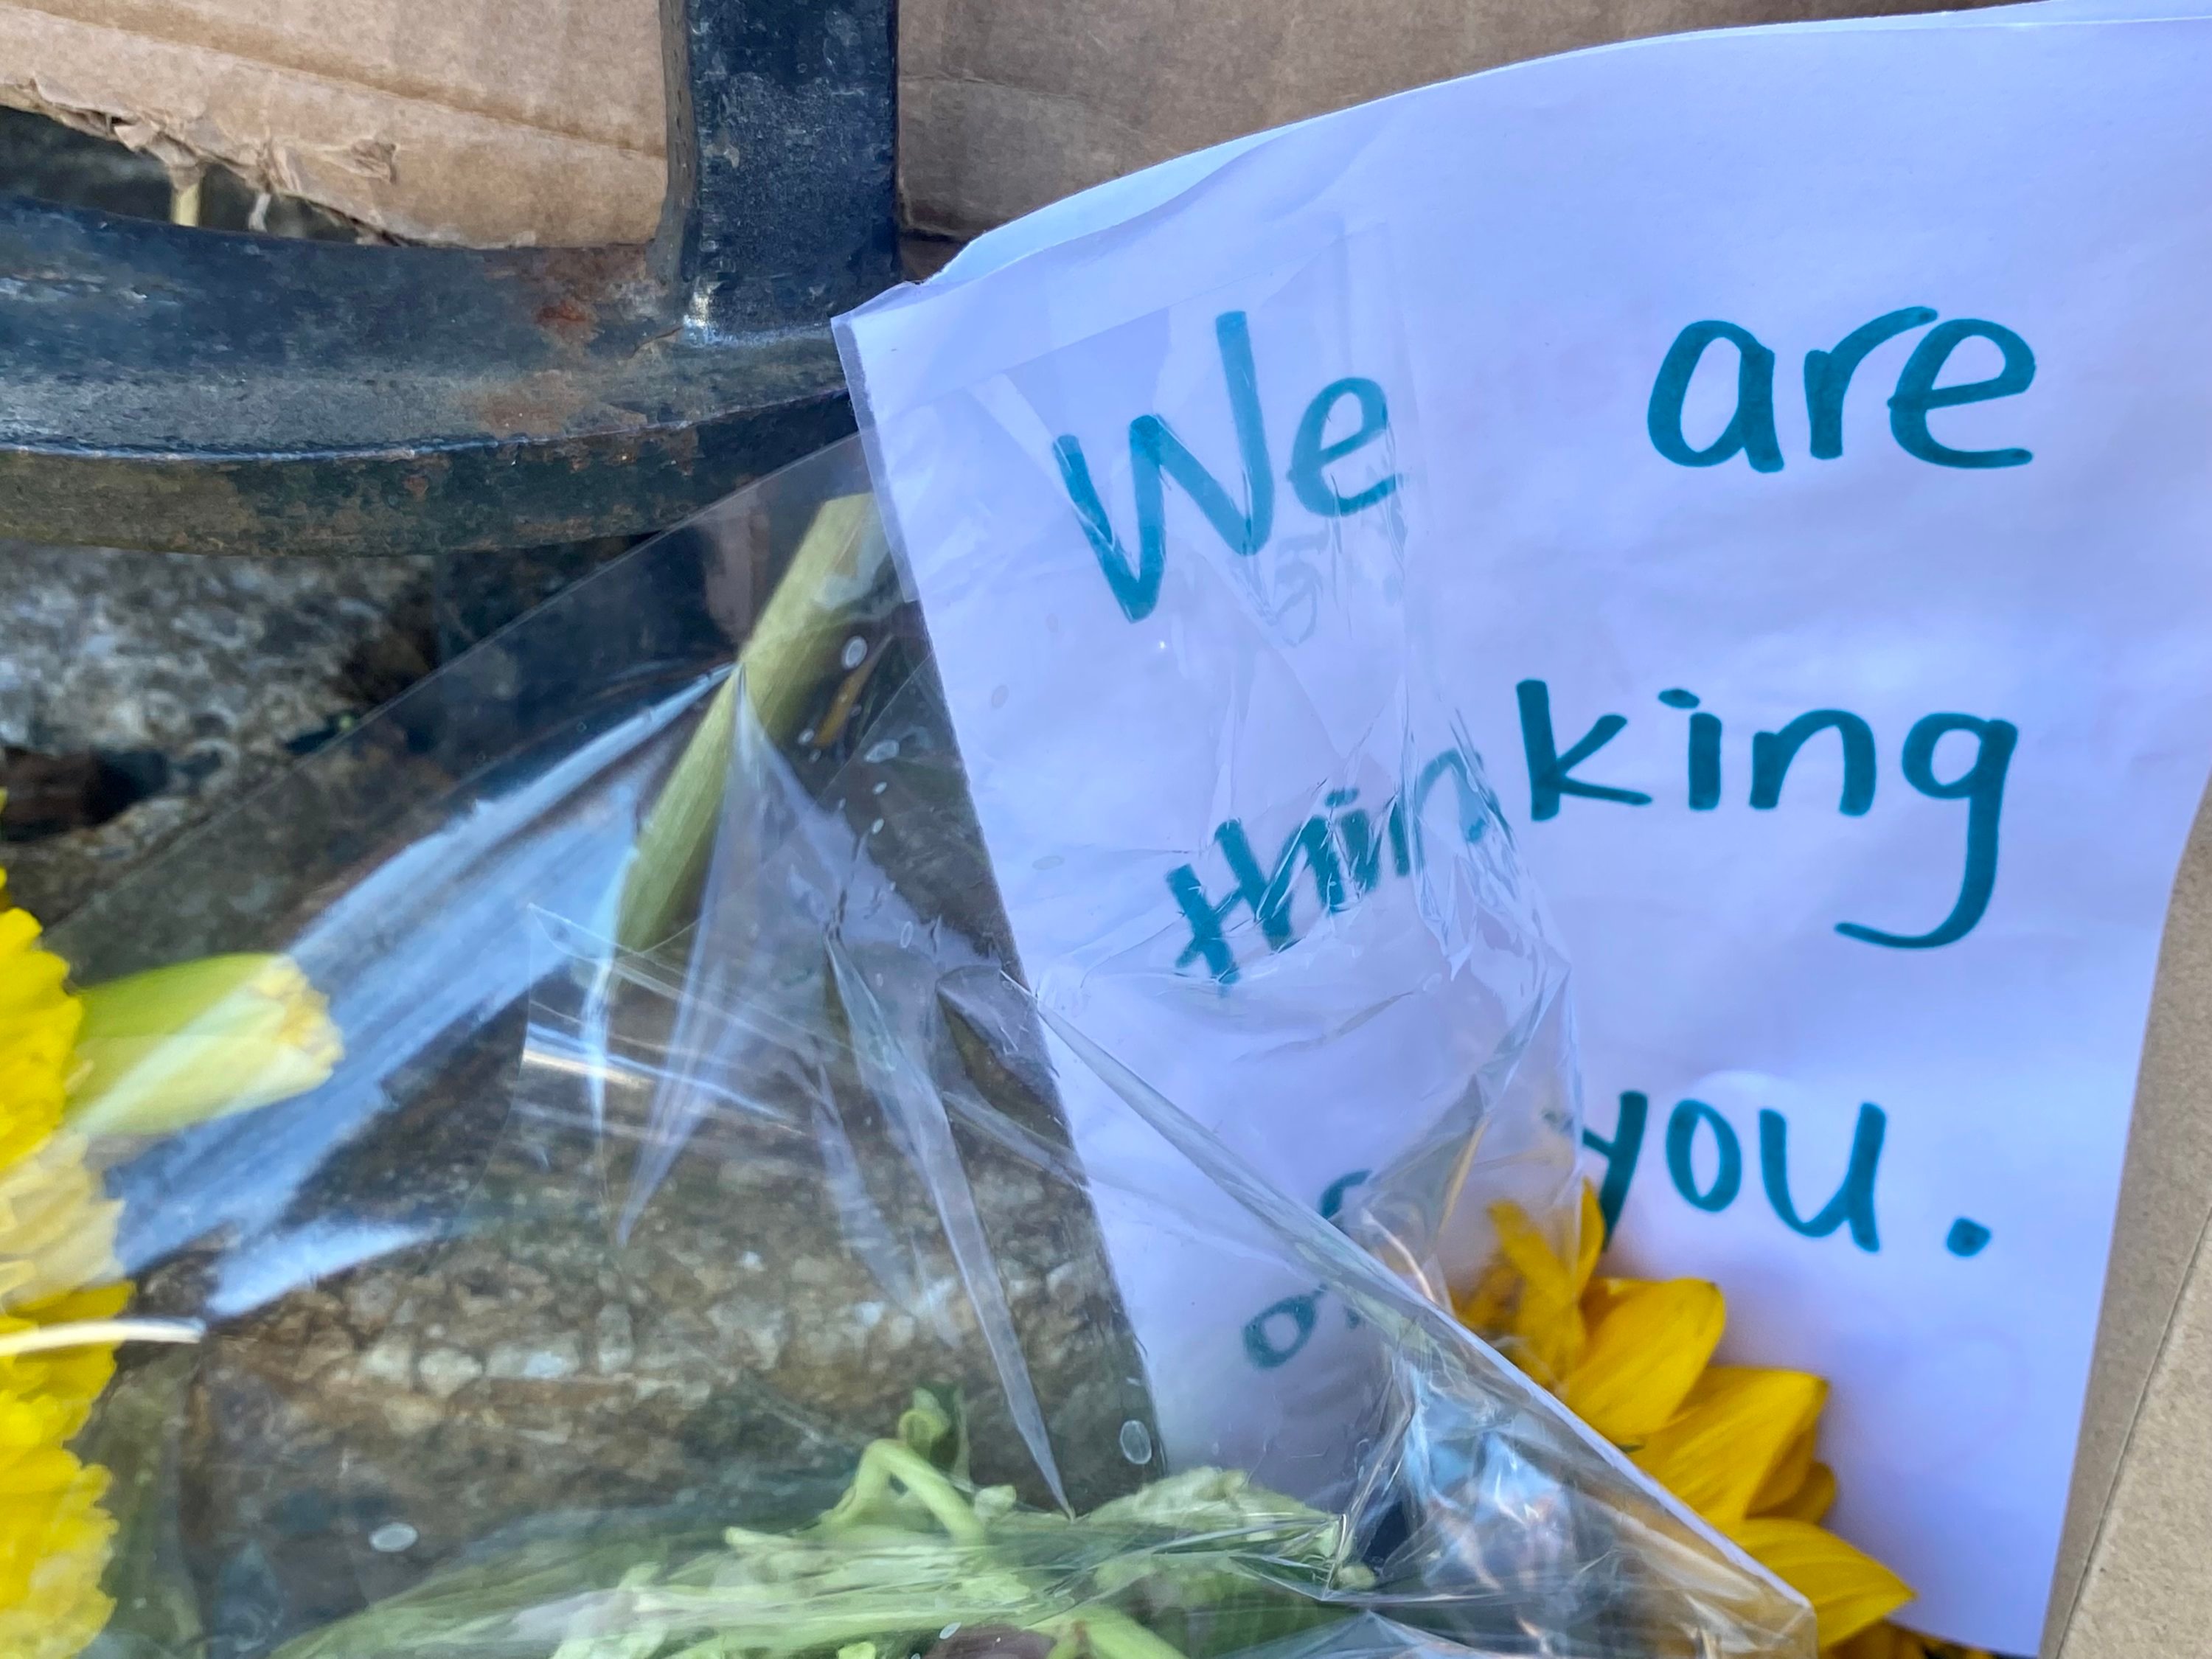 We are
thinking
of you.